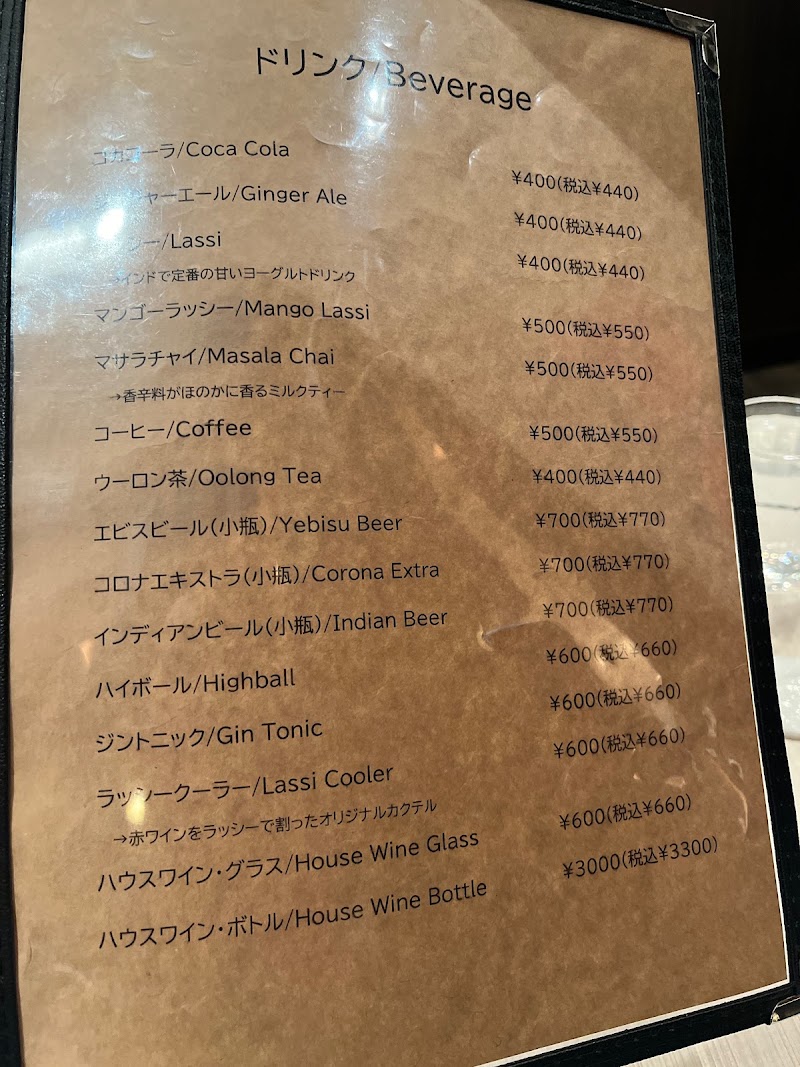 ドリンク/Beverage
コカコーラ/Coca Cola ¥400(税込¥440)
ャーエール/Ginger Ale ¥400(税込¥440)
ー/Lassi ¥400(税込¥440)
→インドで定番の甘いヨーグルトドリンク
マンゴーラッシー/Mango Lassi ¥500(税込¥550)
マサラチャイ/Masala Chai ¥500(税込¥550)
→香辛料がほのかに香るミルクティー
コーヒー/Coffee ¥500(税込¥550)
ウーロン茶/Oolong Tea ¥400(税込¥440)
エビスビール(小瓶)/Yebisu Beer ¥700(税込¥770)
コロナエキストラ(小瓶)/Corona Extra ¥700(税込¥770)
インディアンビール(小瓶)/Indian Beer ¥700(税込¥770)
ハイボール/Highball ¥600(税込¥660)
ジントニック/Gin Tonic ¥600(税込¥660)
ラッシークーラー/Lassi Cooler ¥600(税込¥660)
→赤ワインをラッシーで割ったオリジナルカクテル
ハウスワイン・グラス/House Wine Glass ¥600(税込¥660)
ハウスワイン・ボトル/House Wine Bottle ¥3000(税込¥3300)